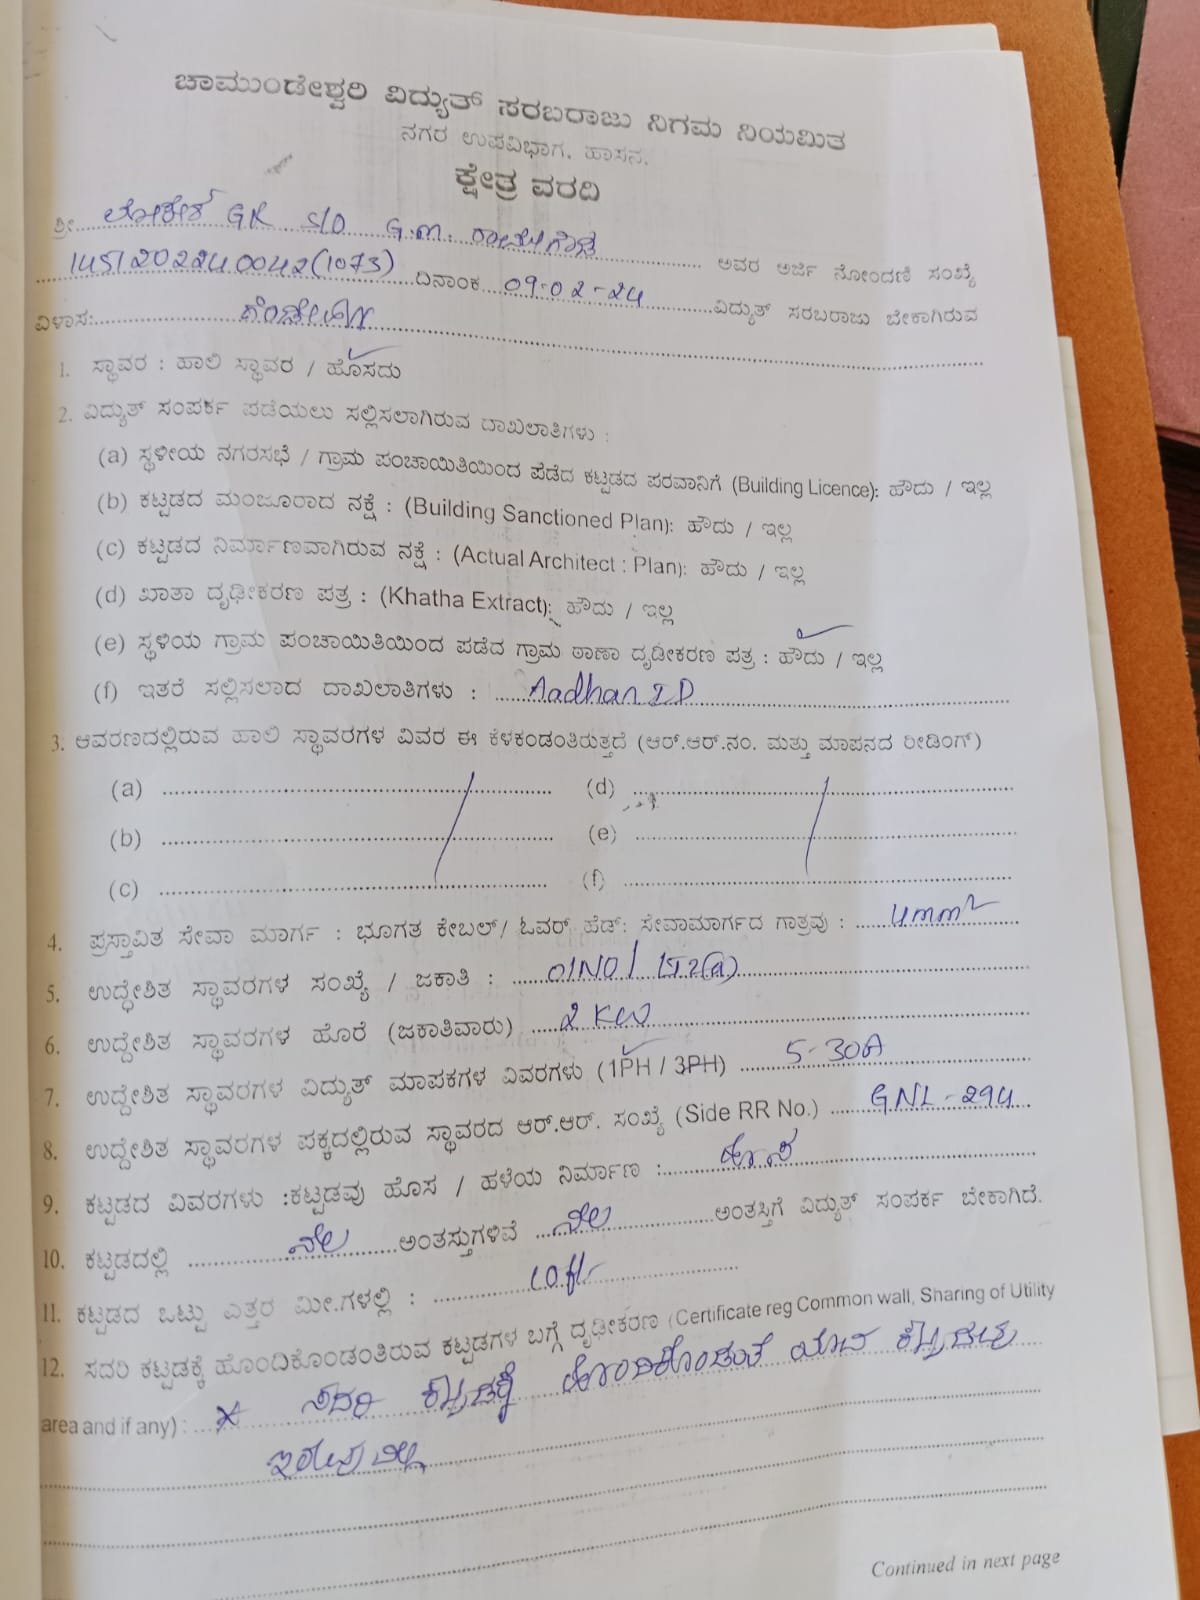 ಚಾಮುಂಡೇಶ್ವರಿ ವಿದ್ಯುತ್ ಸರಬರಾಜು ನಿಗಮ ನಿಯಮಿತ
ನಗರ ಉಪವಿಭಾಗ, ಹಾಸನ.
ಕ್ಷೇತ್ರ ವರದಿ
ಶ್ರೀ ಲೋಕೇಶ GK S/O G.M. ಅವರ ಅರ್ಜಿ ನೋಂದಣಿ ಸಂಖ್ಯೆ
145120224 0042(1073) ದಿನಾಂಕ 09-02-24 ವಿದ್ಯುತ್ ಸರಬರಾಜು ಬೇಕಾಗಿರುವ
ವಿಳಾಸ:
1. ಸ್ಥಾವರ : ಹಾಲಿ ಸ್ಥಾವರ / ಹೊಸದು
2. ವಿದ್ಯುತ್ ಸಂಪರ್ಕ ಪಡೆಯಲು ಸಲ್ಲಿಸಲಾಗಿರುವ ದಾಖಲಾತಿಗಳು :
(a) ಸ್ಥಳೀಯ ನಗರಸಭೆ / ಗ್ರಾಮ ಪಂಚಾಯಿತಿಯಿಂದ ಪೆಡೆದ ಕಟ್ಟಡದ ಪರವಾನಿಗೆ (Building Licence): ಹೌದು / ಇಲ್ಲ
(b) ಕಟ್ಟಡದ ಮಂಜೂರಾದ ನಕ್ಷೆ : (Building Sanctioned Plan): ಹೌದು / ಇಲ್ಲ
(c) ಕಟ್ಟಡದ ನಿರ್ಮಾಣವಾಗಿರುವ ನಕ್ಷೆ : (Actual Architect : Plan): ಹೌದು / ಇಲ್ಲ
(d) ಖಾತಾ ದೃಢೀಕರಣ ಪತ್ರ : (Khatha Extract): ಹೌದು / ಇಲ್ಲ
(e) ಸ್ಥಳಿಯ ಗ್ರಾಮ ಪಂಚಾಯಿತಿಯಿಂದ ಪಡೆದ ಗ್ರಾಮ ಠಾಣಾ ದೃಡೀಕರಣ ಪತ್ರ : ಹೌದು / ಇಲ್ಲ
(f) ಇತರೆ ಸಲ್ಲಿಸಲಾದ ದಾಖಲಾತಿಗಳು : Aadhar ID
3. ಆವರಣದಲ್ಲಿರುವ ಹಾಲಿ ಸ್ಥಾವರಗಳ ವಿವರ ಈ ಕೆಳಕಂಡಂತಿರುತ್ತದೆ (ಆರ್.ಆರ್.ನಂ. ಮತ್ತು ಮಾಪನದ ರೀಡಿಂಗ್)
(a) (d)
(b) (e)
(c) (f)
4. ಪ್ರಸ್ತಾವಿತ ಸೇವಾ ಮಾರ್ಗ : ಭೂಗತ ಕೇಬಲ್/ ಓವರ್ ಹೆಡ್: ಸೇವಾಮಾರ್ಗದ ಗಾತ್ರವು : 4mm²
5. ಉದ್ಧೇಶಿತ ಸ್ಥಾವರಗಳ ಸಂಖ್ಯೆ / ಜಕಾತಿ : 01NO / LT2(a)
6. ಉದ್ದೇಶಿತ ಸ್ಥಾವರಗಳ ಹೊರೆ (ಜಕಾತಿವಾರು) 2 KW
7. ಉದ್ದೇಶಿತ ಸ್ಥಾವರಗಳ ವಿದ್ಯುತ್ ಮಾಪಕಗಳ ವಿವರಗಳು (1PH / 3PH) 5-30A
8. ಉದ್ದೇಶಿತ ಸ್ಥಾವರಗಳ ಪಕ್ಕದಲ್ಲಿರುವ ಸ್ಥಾವರದ ಆರ್.ಆರ್. ಸಂಖ್ಯೆ (Side RR No.) GNL-294
9. ಕಟ್ಟಡದ ವಿವರಗಳು :ಕಟ್ಟಡವು ಹೊಸ / ಹಳೆಯ ನಿರ್ಮಾಣ : ಹೊಸ
10. ಕಟ್ಟಡದಲ್ಲಿ ನೆಲ ಅಂತಸ್ತುಗಳಿವೆ ನೆಲ ಅಂತಸ್ತಿಗೆ ವಿದ್ಯುತ್ ಸಂಪರ್ಕ ಬೇಕಾಗಿದೆ.
11. ಕಟ್ಟಡದ ಒಟ್ಟು ಎತ್ತರ ಮೀ.ಗಳಲ್ಲಿ : 10ft
12. ಸದರಿ ಕಟ್ಟಡಕ್ಕೆ ಹೊಂದಿಕೊಂಡಂತಿರುವ ಕಟ್ಟಡಗಳ ಬಗ್ಗೆ ದೃಢೀಕರಣ (Certificate reg Common wall, Sharing of Utility
area and if any) : ಸದರಿ ಕಟ್ಟಡಕ್ಕೆ ಹೊಂದಿಕೊಂಡಂತೆ ಯಾವ ಕಟ್ಟಡವು
ಇರುವುದಿಲ್ಲ
Continued in next page